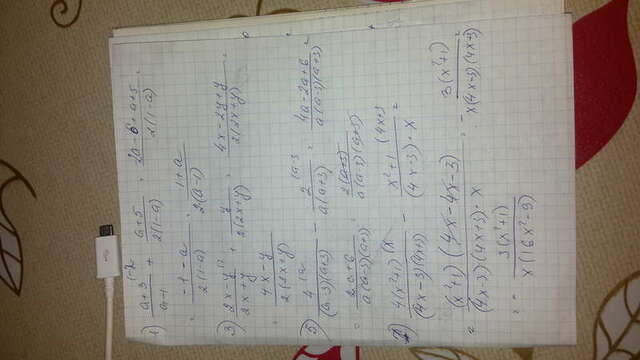 1) (a+3)/(a-1) + (a+5)/(2(1-a)) = (2a-6+a+5)/(2(1-a)) =
= (-1-a)/(2(1-a)) = (1+a)/(2(a-1))
3) (2x-y)/(2x+y) + y/(2(2x+y)) = (4x-2y+y)/(2(2x+y)) =
(4x-y)/(2(2x+y))
5) 4/((a-3)(a+3)) - 2/(a(a+3)) = (4a-2a+6)/(a(a-3)(a+3)) =
= (2a+6)/(a(a-3)(a+3)) = (2(a+3))/(a(a-3)(a+3))
4(x²+1)/((4x-3)(4x+3)) - (x²+1)/((4x-3)·x) =
= ((x²+1)(4x-4x-3))/((4x-3)(4x+3)·x) = - (3(x²+1))/(x(4x-3)(4x+3))
= - (3(x²+1))/(x(16x²-9))